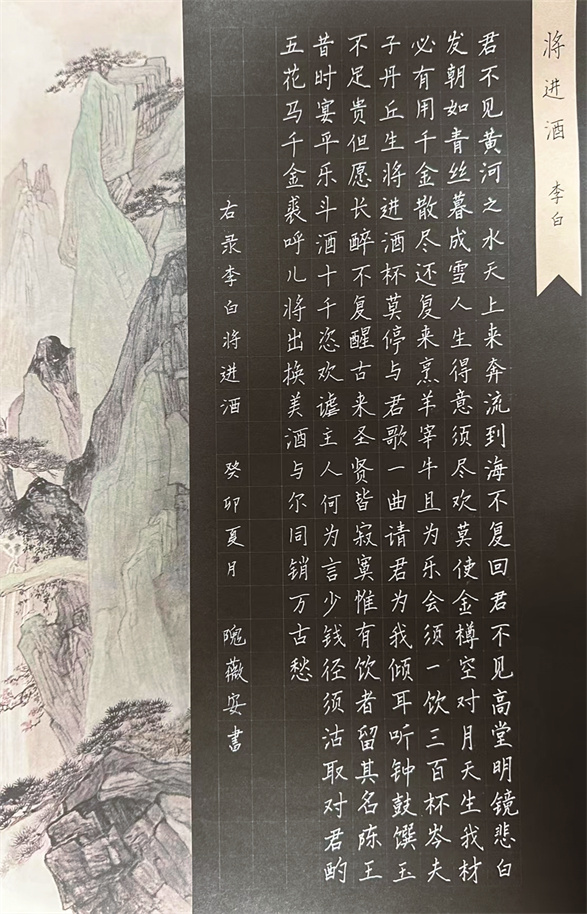 将进酒 李白
君不见黄河之水天上来奔流到海不复回君不见高堂明镜悲白
发朝如青丝暮成雪人生得意须尽欢莫使金樽空对月天生我材
必有用千金散尽还复来烹羊宰牛且为乐会须一饮三百杯岑夫
子丹丘生将进酒杯莫停与君歌一曲请君为我倾耳听钟鼓馔玉
不足贵但愿长醉不复醒古来圣贤皆寂寞惟有饮者留其名陈王
昔时宴平乐斗酒十千恣欢谑主人何为言少钱径须沽取对君酌
五花马千金裘呼儿将出换美酒与尔同销万古愁
右录李白将进酒 癸卯夏月 隗薇安书